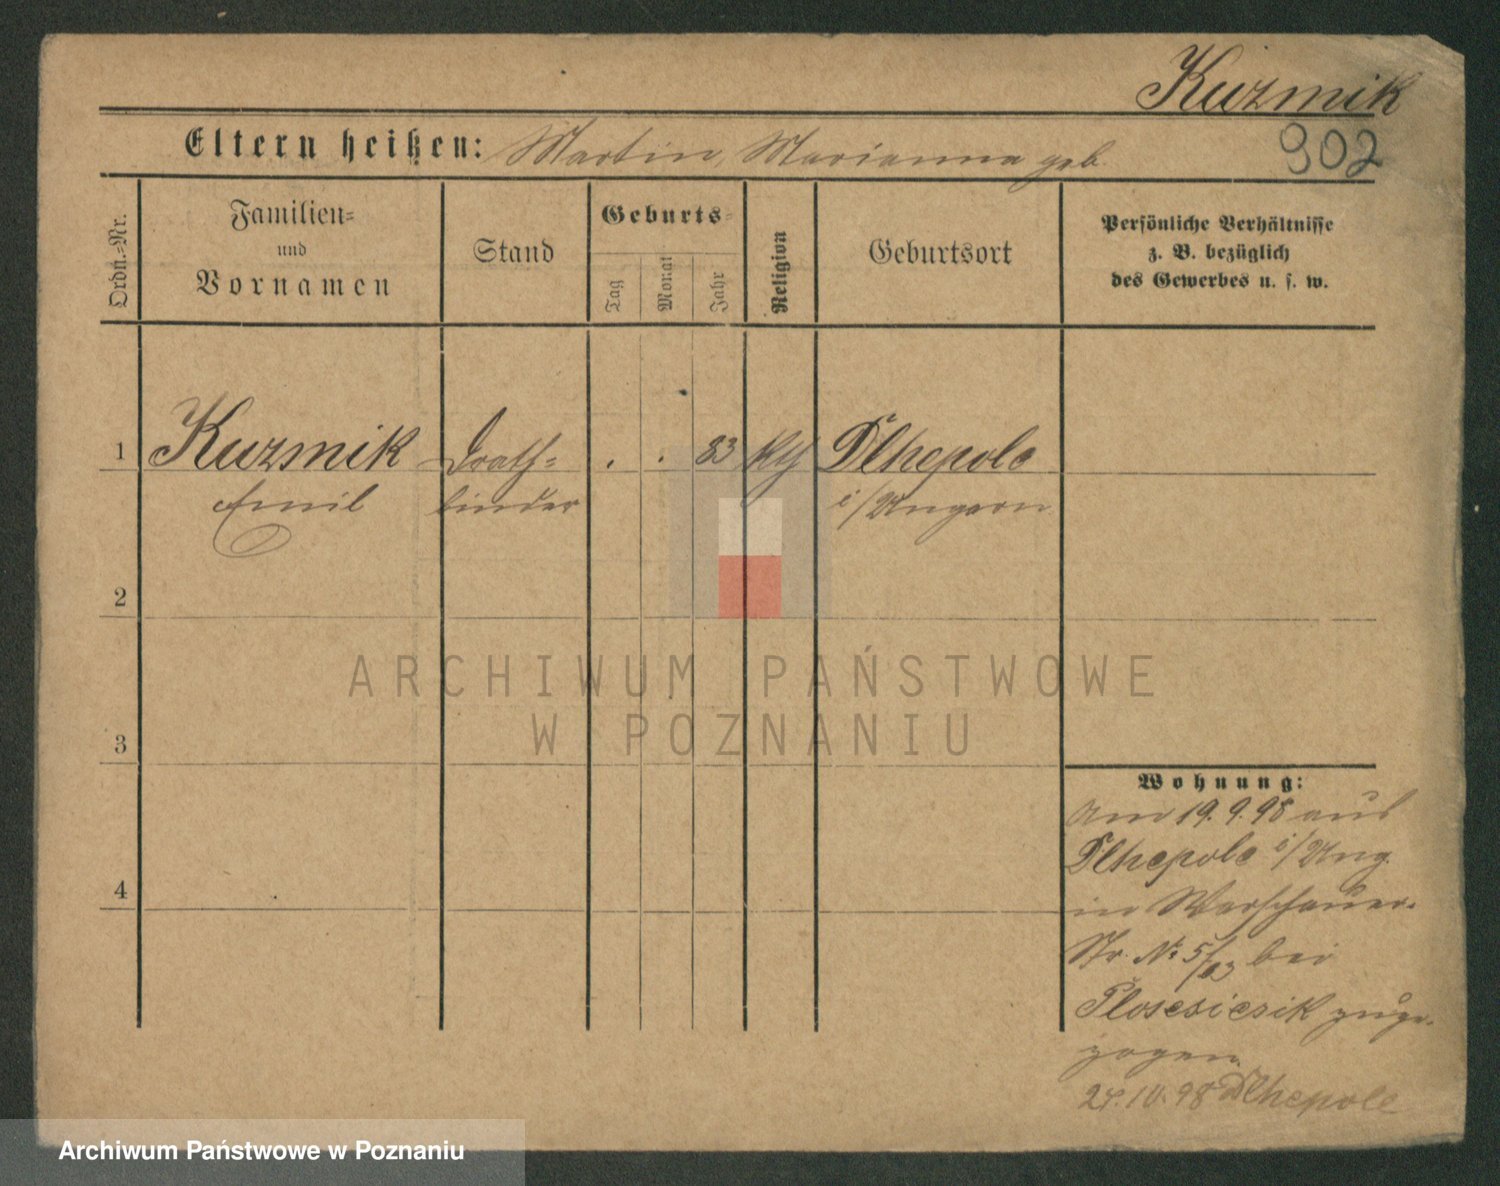 Kuzmik
Eltern heißen: Martin, Marianna geb.
902
Ordn.-Nr.
Familien-
und
Vornamen
Stand
Geburts-
Tag
Monat
Jahr
Religion
Geburtsort
Persönliche Verhältnisse
z. B. bezüglich
des Gewerbes u. s. w.
1 Kuzmik Drath- . . 83 kth Dlhepole
Emil binder i/Ungarn
2
3
4
Wohnung:
Am 19.9.98 aus
Dlhepole i/Ung.
in Warschauer-
Str. № 5/ bei
zuge-
zogen.
10.98 Dlhepole
ARCHIWUM PAŃSTWOWE
W POZNANIU
Archiwum Państwowe w Poznaniu